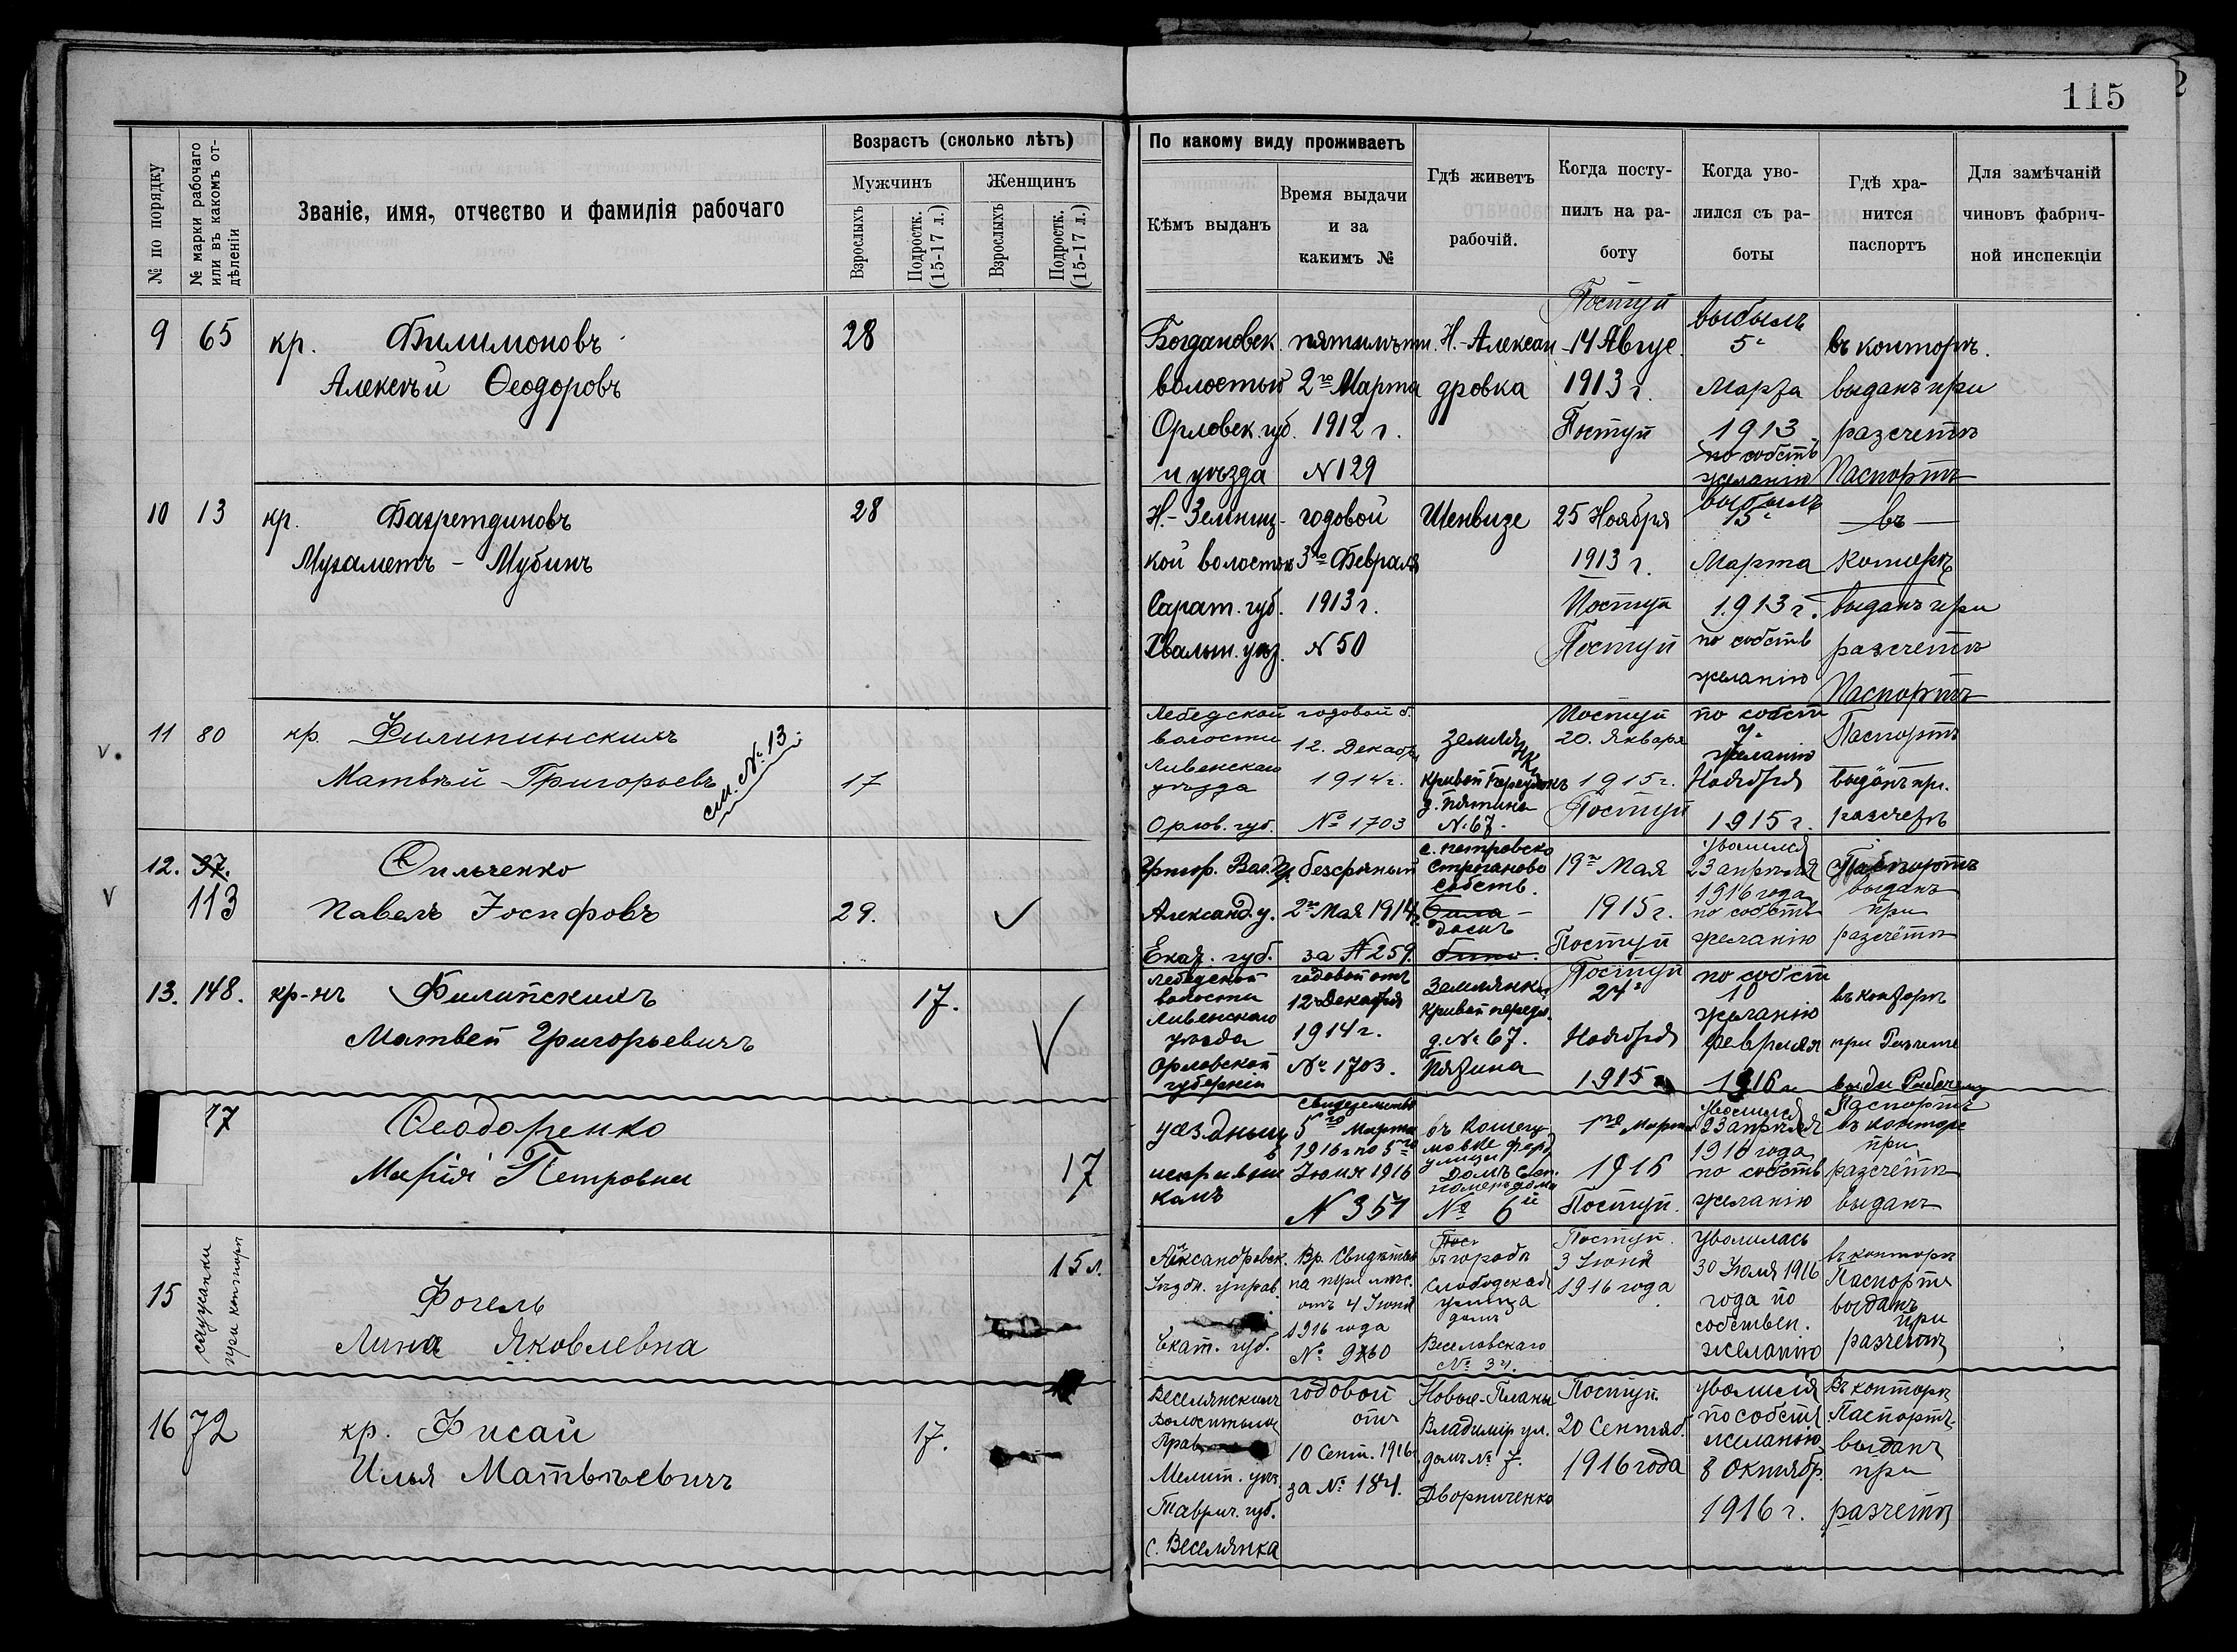 115
2
№ по порядку
№ марки рабочаго
или въ какомъ от-
дѣленіи
Званіе, имя, отчество и фамилія рабочаго
Возрастъ (сколько лѣтъ)
Мужчинъ
Женщинъ
Взрослыхъ
Подростк.
(15-17 л.)
Взрослыхъ
Подростк.
(15-17 л.)
По какому виду проживаетъ
Кѣмъ выданъ
Время выдачи
и за
какимъ №
Гдѣ живетъ
рабочій.
Когда посту-
пилъ на ра-
боту
Когда уво-
лился съ ра-
боты
Гдѣ хра-
нится
паспортъ
Для замѣчаній
чиновъ фабрич-
ной инспекціи
9
65
кр. Филимоновъ
Алексѣй Ѳеодоровъ
28
Богдановск.
волостью
Орловск. губ.
и уѣзда
пятилѣтн.
2го Марта
1912 г.
N 129
Н.-Алексан
дровка
Поступ
14 Авгус.
1913 г.
Поступ
выбылъ
5
Марта
1913
по собств
желанію
въ конторѣ.
выданъ при
разсчетѣ
Паспортъ
10
13
кр. Фахретдиновъ
Мухаметъ - Мубинъ
28
кой волостью
Сарат. губ.
Хвалын. уѣз.
годовой
3го Февраля
1913 г.
N 50
Шенвизе
25 Ноября
1913 г.
Поступ
Поступ
выбылъ
15
Марта
1913 г.
по собств
желанію
въ
конторѣ
выданъ при
разсчетѣ
Паспортъ
11
80
кр. Филипинскихъ
Матвѣй Григорьевъ
см. № 13.
17
Лебедской
волости
Ливенскаго
уѣзда
Орлов. губ.
годовой
12. Декабр
1914 г.
№ 1703
землянки
Кривой Переулокъ
д. Пятина
№ 67.
Поступ
20. Января
1915 г.
Поступ
по собст
7
желанію
Ноября
1915 г.
Паспортъ
выданъ пр.
разсчетъ
12.
37.
113
Фильченко
Павелъ Іосифовъ
29.
Григор. Вол.
Александ. у.
Екат. губ.
безсрочный
2го Мая 1914
за N 259.
с. Петровско
Строганово
собств.
домъ
19го Мая
1915 г.
Поступ
уволился
23 апрѣля
1916 года
по собств
желанію
Паспортъ
выданъ
при
разсчётѣ
13.
148.
кр-нъ Филипскихъ
Матвей Григорьевичъ
17.
Лебедской
волости
Ливенскаго
уѣзда
Орловской
губерніи
годовой отъ
12 Декабря
1914 г.
№ 1703.
Землянки
Кривой переул.
д. № 67.
Пятина
Поступ
24
Ноября
1915
по собст
10
желанію
февраля
1916
въ конторѣ
при Разчете
17
Ѳеодоренко
Марія Петровна
17
уѣздным
Свидетельство
5го Марта
1916 г по 5го
Іюня 1916
N 357
улицы
№ 6й
1го Марта
1916
Поступ.
уволился
23 апрѣля
1916 года
по собств
желанію
Паспортъ
въ конторѣ
при
разсчётѣ
выданъ
15
служанки
при конторѣ
Фогель
Лина Яковлевна
15 л.
Александровск.
Уѣздн. управ.
Екат. губ.
Вр. Свидѣтел
отъ 4 Іюня
1916 года
№ 9760
въ городѣ
Слободская
улица
домъ
Веселовскаго
№ 34.
Поступ.
3 Іюня
1916 года
уволилась
30 Іюля 1916
года по
собствен.
желанію
въ конторѣ
Паспортъ
выданъ
при
разчетѣ
16
72
кр. Фисай
Илья Матвѣевичъ
17.
Веселянскимъ
Волостнымъ
Прав
Мелит. уѣз.
Таврич. губ.
с. Веселянка
годовой
отъ
10 Сент. 1916
за № 184.
Новые-Планы
Владимір ул.
домъ № 7.
Дворниченко
Поступ.
20 Сентяб.
1916 года
уволился
по собств
желанію
8 Октябр.
1916 г.
Въ конторѣ
Паспортъ
выданъ
при
разчетѣ